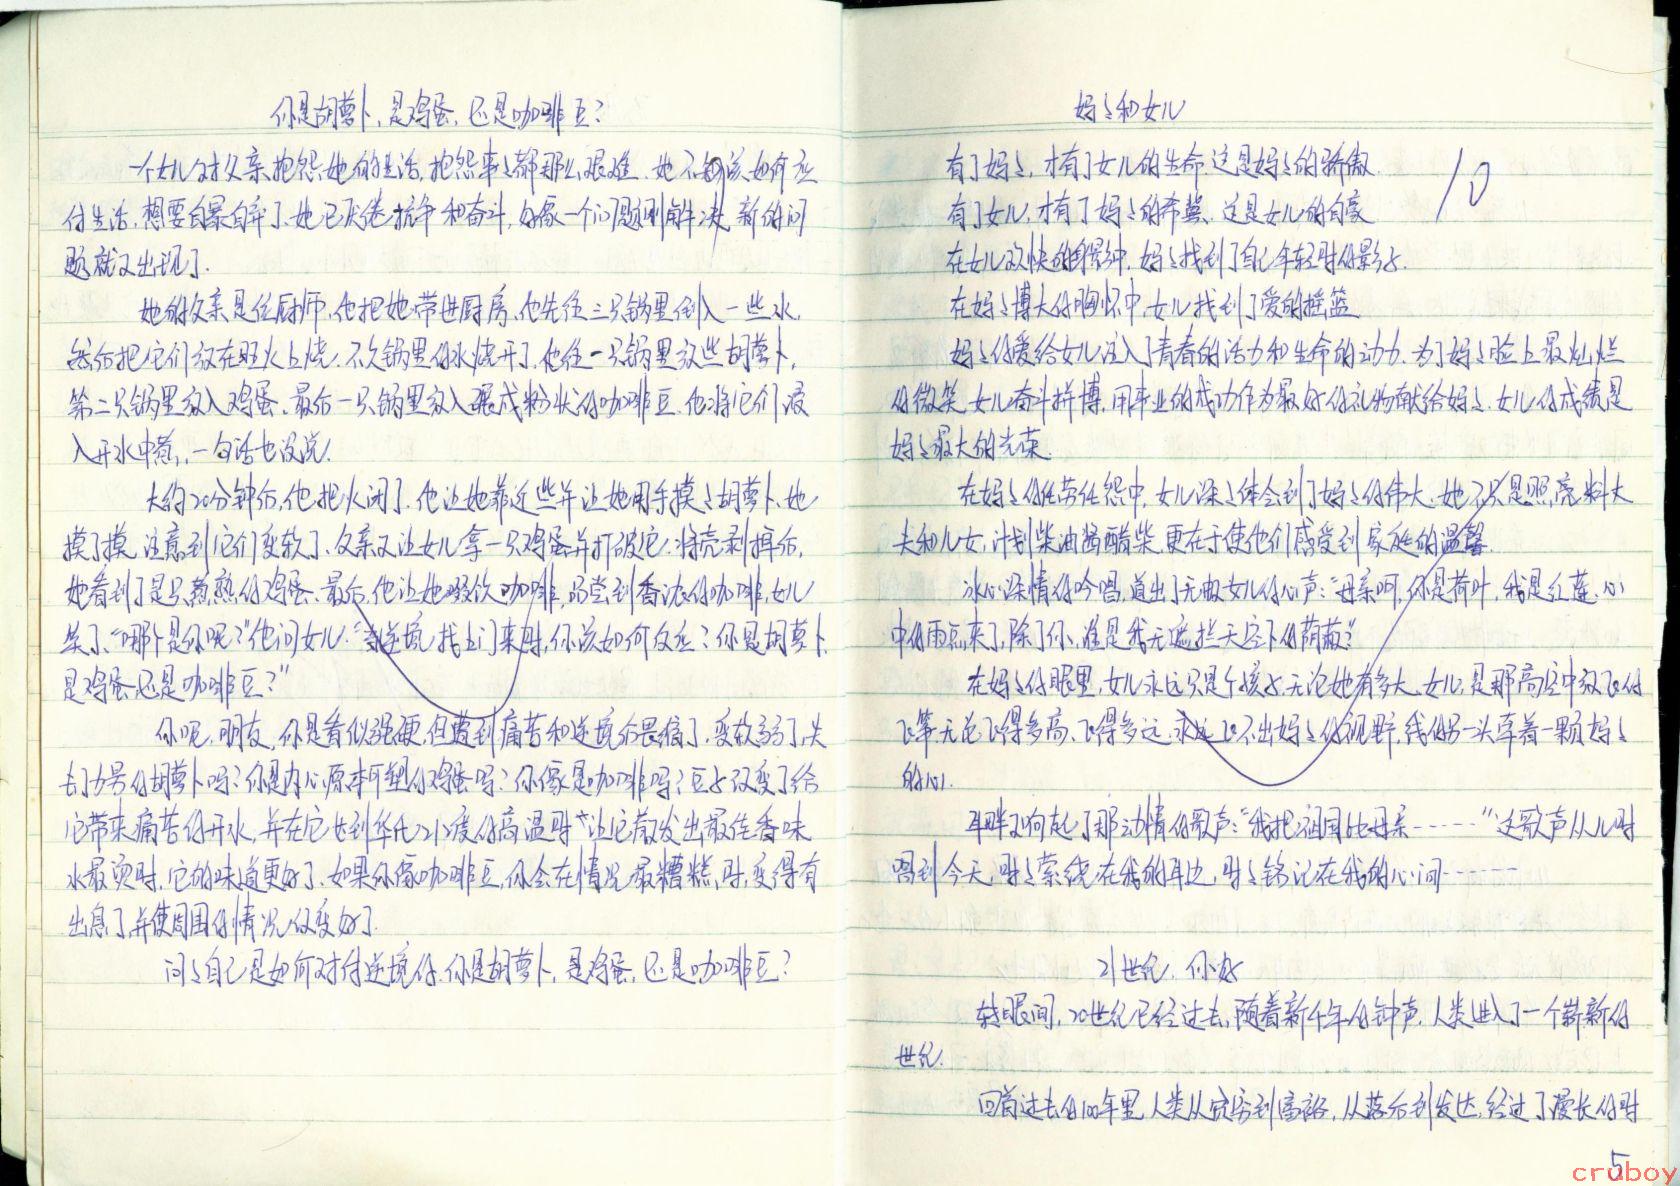 你是胡萝卜,是鸡蛋,还是咖啡豆?
一个女儿对父亲抱怨她的生活,抱怨事々都那么艰难.她不知该如何应
付生活,想要自暴自弃了.她已厌倦抗争和奋斗,好像一个问题刚解决,新的问
题就又出现了.
她的父亲是位厨师,他把她带进厨房.他先往三只锅里倒入一些水,
然后把它们放在旺火上烧.不久锅里的水烧开了.他往一只锅里放些胡萝卜,
第二只锅里放入鸡蛋,最后一只锅里放入碾成粉状的咖啡豆.他将它们浸
入开水中煮,一句话也没说.
大约20分钟后,他把火闭了.他让她靠近些并让她用手摸々胡萝卜.她
摸了摸,注意到它们变软了.父亲又让女儿拿一只鸡蛋并打破它.将壳剥掉后,
她看到了是只煮熟的鸡蛋.最后,他让她啜饮咖啡,品尝到香浓的咖啡,女儿
笑了."哪个是你呢?"他问女儿."当逆境找上门来时,你该如何反应?你是胡萝卜,
是鸡蛋,还是咖啡豆?"
你呢,朋友,你是看似强硬,但遭到痛苦和逆境后畏缩了,变软弱了,失
去了力量的胡萝卜吗?你是内心原本可塑的鸡蛋吗?你像是咖啡吗?豆子改变了给
它带来痛苦的开水,并在它达到华氏212度的高温时让它散发出最佳香味
水最烫时,它的味道更好了.如果你像咖啡豆,你会在情况最糟糕时,变得有
出息了,并使周围的情况变好了.
问々自己是如何对付逆境的.你是胡萝卜,是鸡蛋,还是咖啡豆?
妈々和女儿
有了妈々,才有了女儿的生命.这是妈々的骄傲.
有了女儿,才有了妈々的希冀.这是女儿的自豪
在女儿欢快的身影中,妈々找到了自己年轻时的影子.
在妈々博大的胸怀中,女儿找到了爱的摇篮
妈々的爱给女儿注入了青春的活力和生命的动力.为了妈々脸上最灿烂
的微笑,女儿奋斗拼博,用事业的成功作为最好的礼物献给妈々.女儿的成绩是
妈々最大的光荣.
在妈々的任劳任怨中,女儿深々体会到了妈々的伟大.她不只是照亮料丈
夫和儿女,计划柴油酱醋柴,更在于使他们感受到家庭的温馨.
冰心深情的吟唱,道出了无数女儿的心声:"母亲呵,你是荷叶,我是红莲.心
中的雨点来了,除了你,谁是我无遮拦天空下的荫蔽?"
在妈々的眼里,女儿永远只是个孩子,无论她有多大.女儿,是那高空中放飞的
飞筝,无论飞得多高,飞得多远,永远飞不出妈々的视野,线的另一头牵着一颗妈々
的心.
耳畔又响起了那动情的歌声:"我把祖国比母亲……"这歌声从儿时
唱到今天,时々萦绕在我的耳边,时々铭记在我的心间……
10
21世纪,你好
转眼间,20世纪已经过去,随着新千年的钟声,人类进入了一个崭新的
世纪.
回首过去的100年里,人类从贫穷到富裕,从落后到发达,经过了漫长的时
5
cruboy